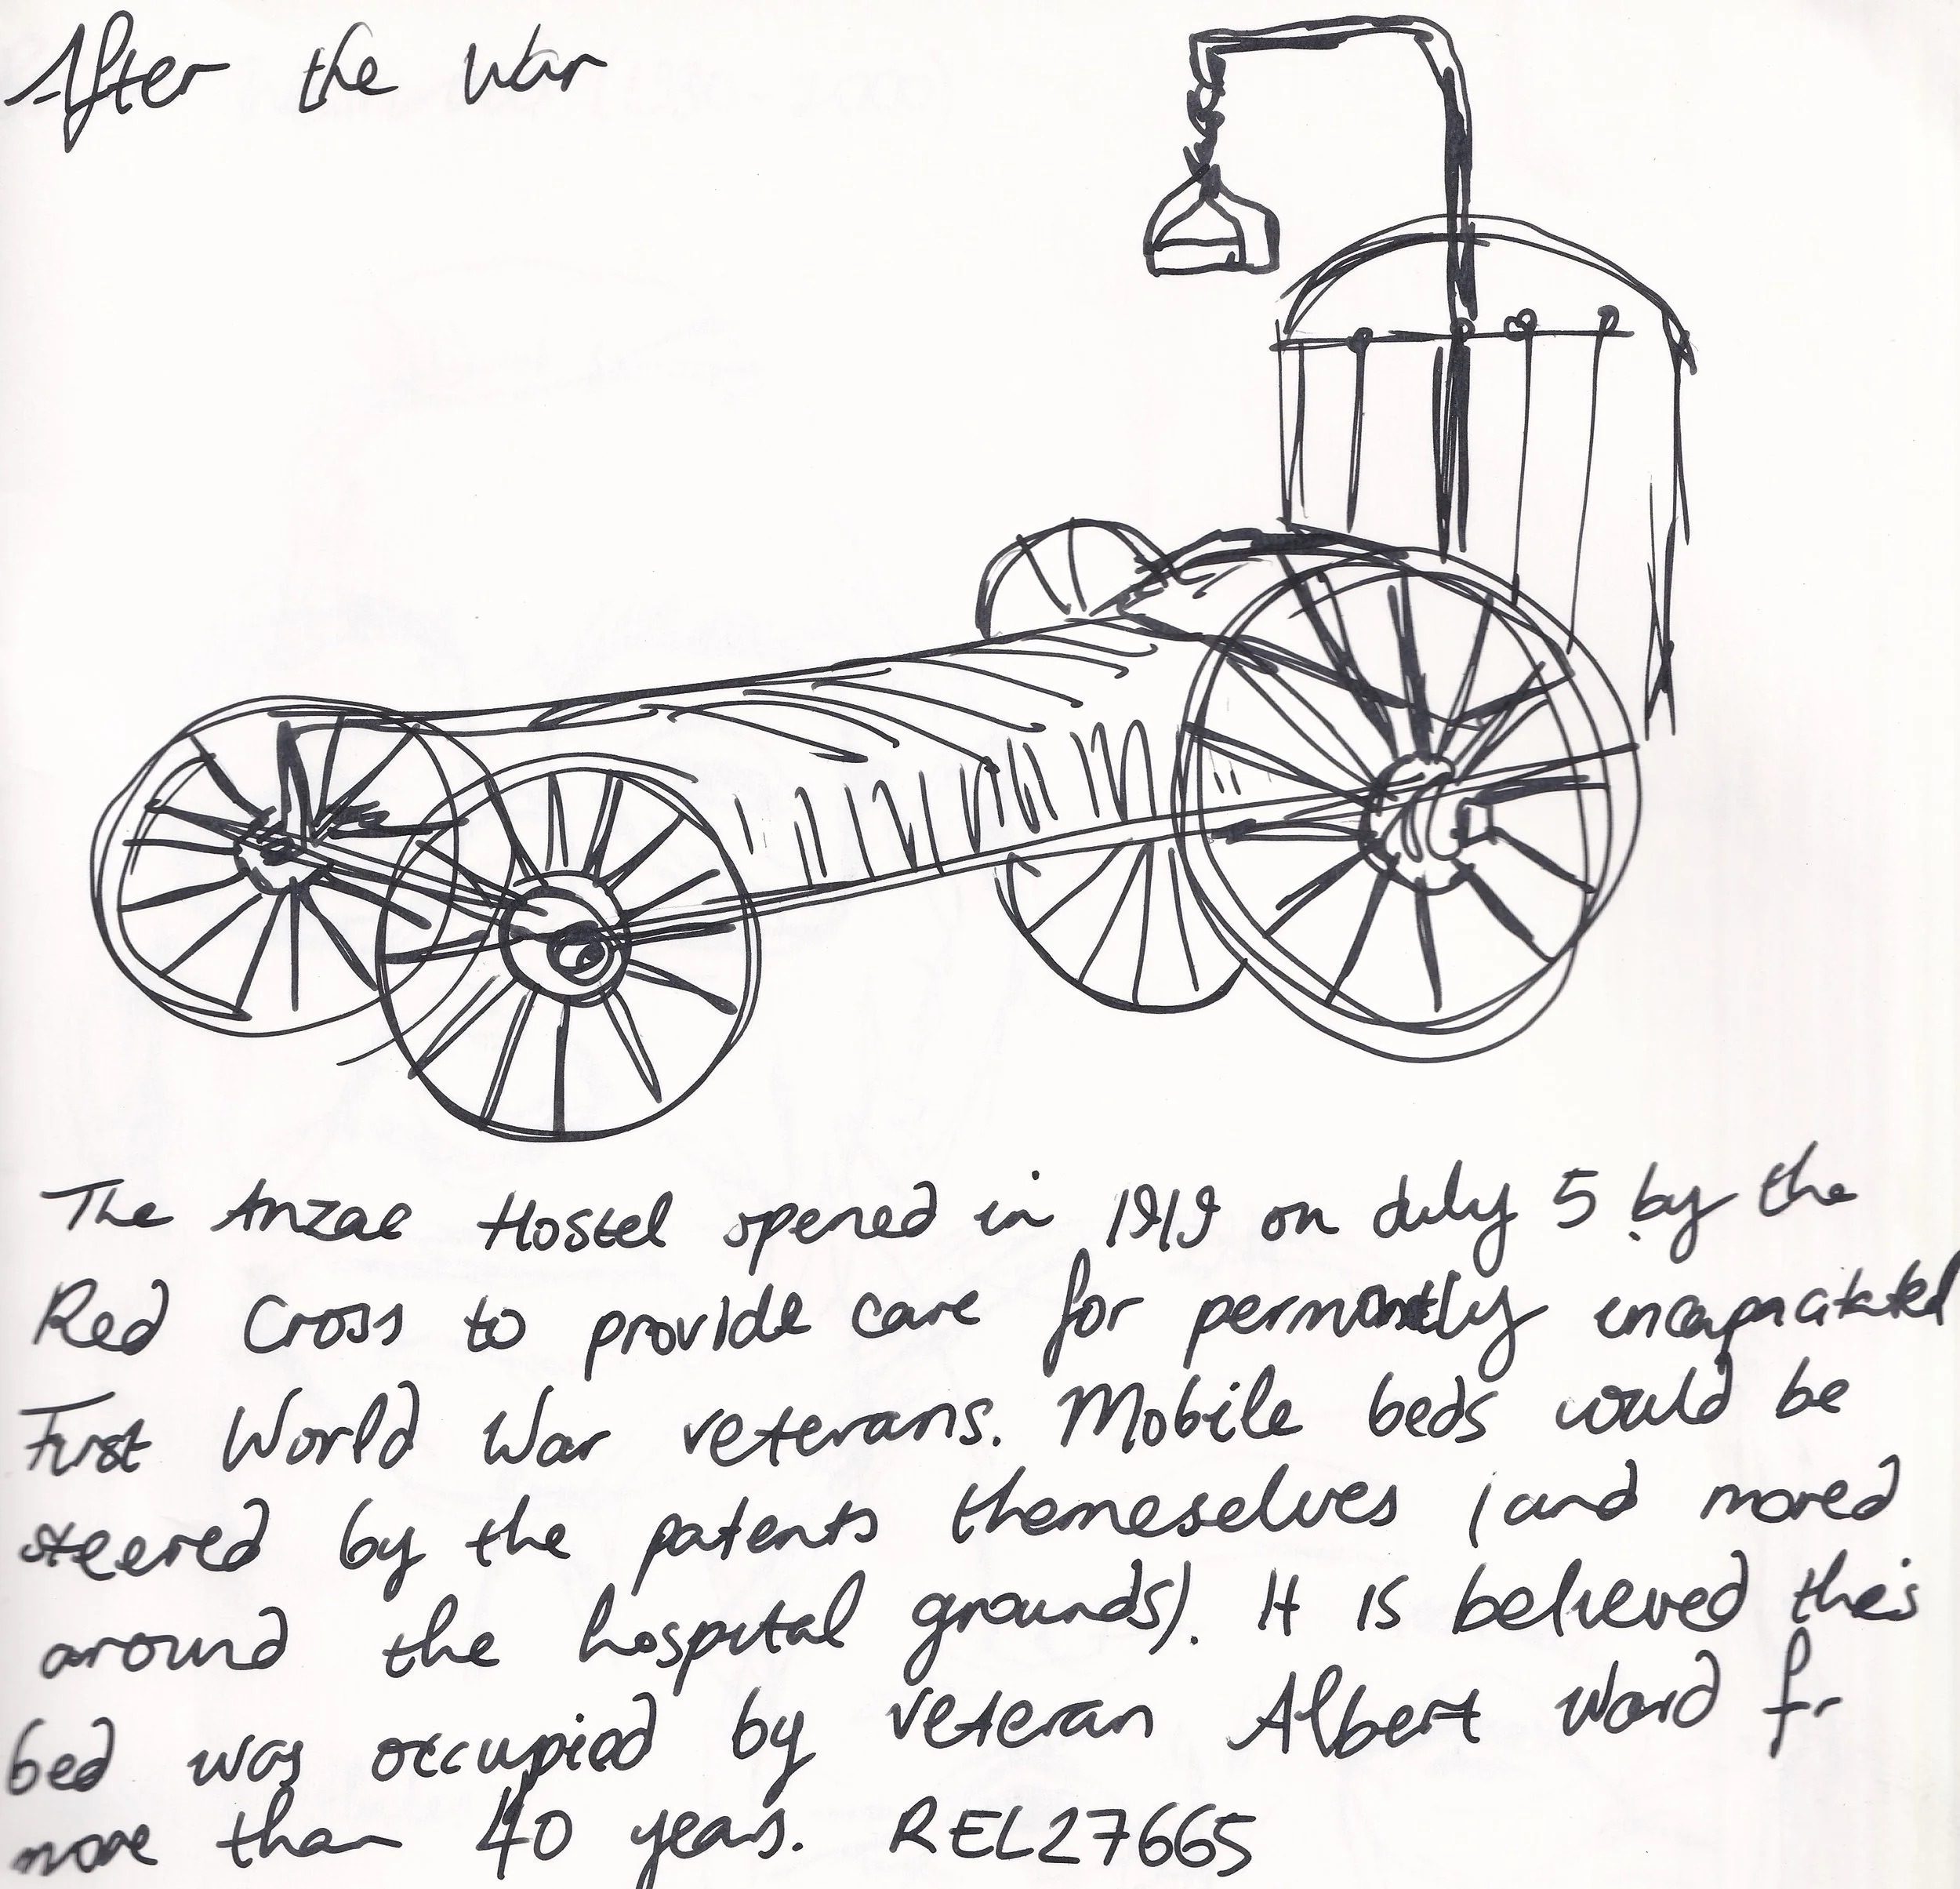 After the War
The Anzac Hostel opened in 1919 on July 5 by the
Red Cross to provide care for permantly incapacitated
First World War veterans. Mobile beds would be
steered by the patents themeselves (and moved
around the hospital grounds). It is believed this
bed was occupied by veteran Albert Ward fr
more than 40 years. REL27665